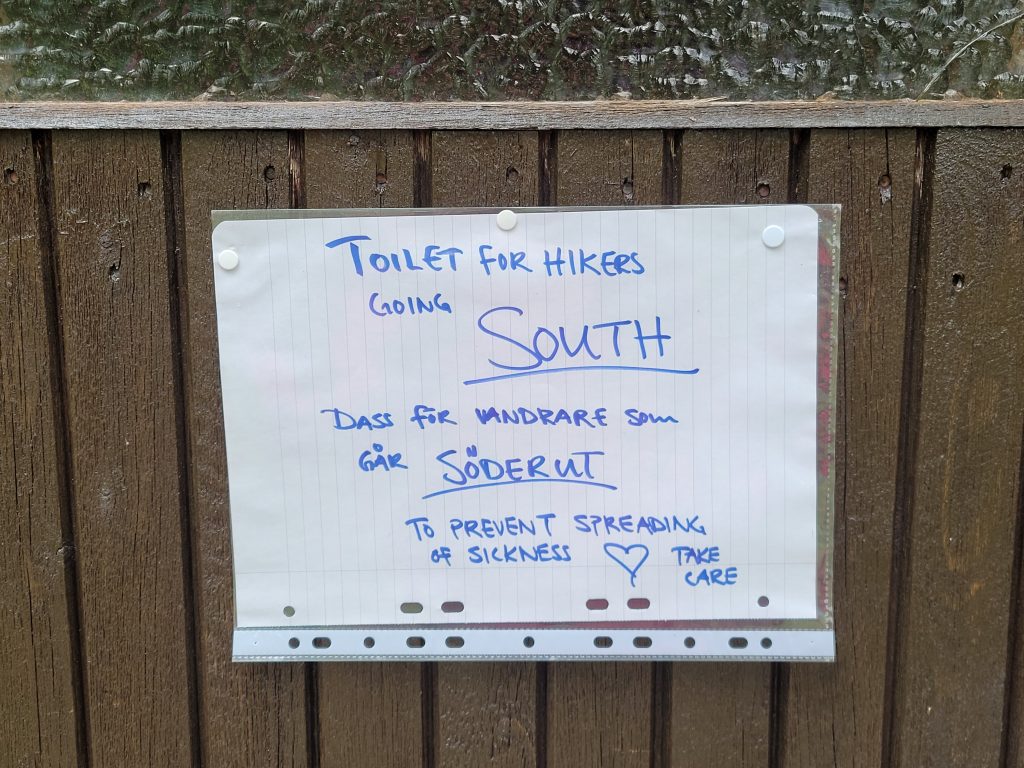 TOILET FOR HIKERS
GOING
SOUTH
DASS FÖR VANDRARE SOM
GÅR SÖDERUT
TO PREVENT SPREADING
OF SICKNESS ♡ TAKE
CARE